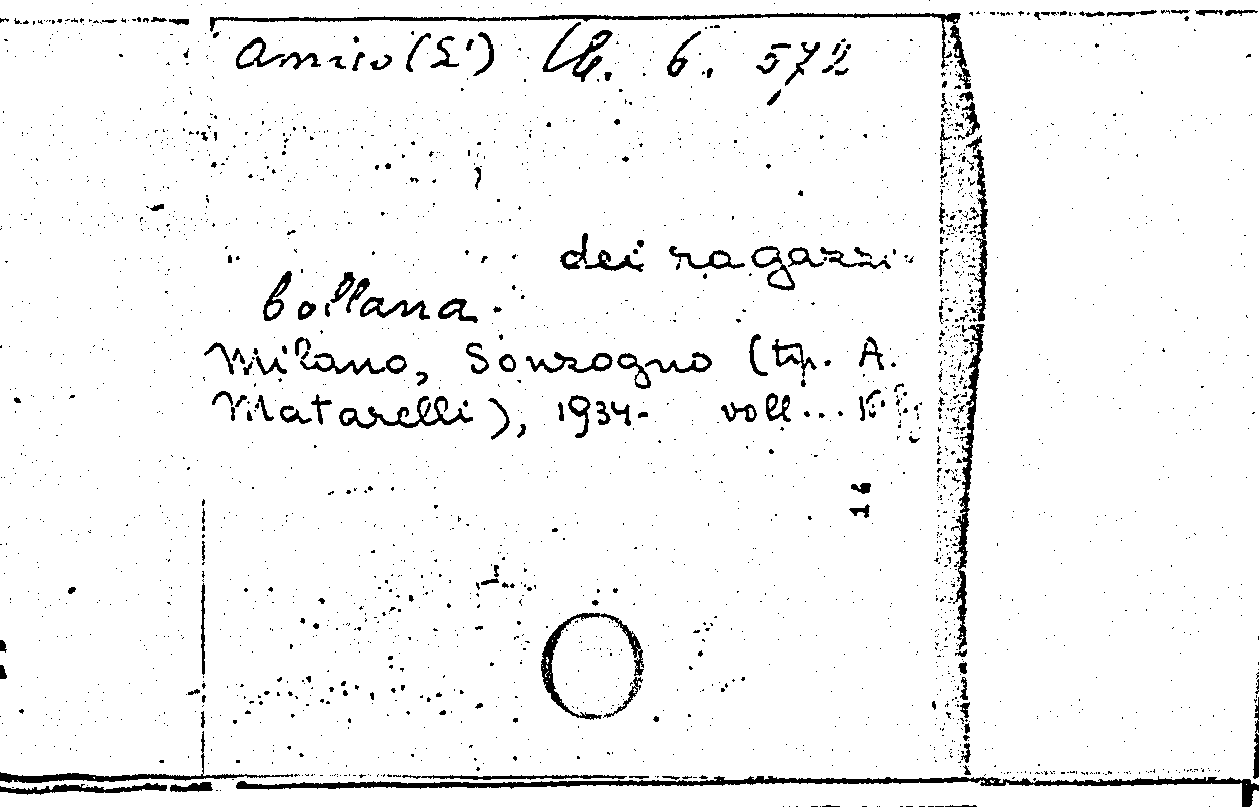 Amico (L') Cb. 6. 572
dei ragazzi.
Collana.
Milano, Sonzogno (tip. A.
Matarelli), 1934- voll...
16